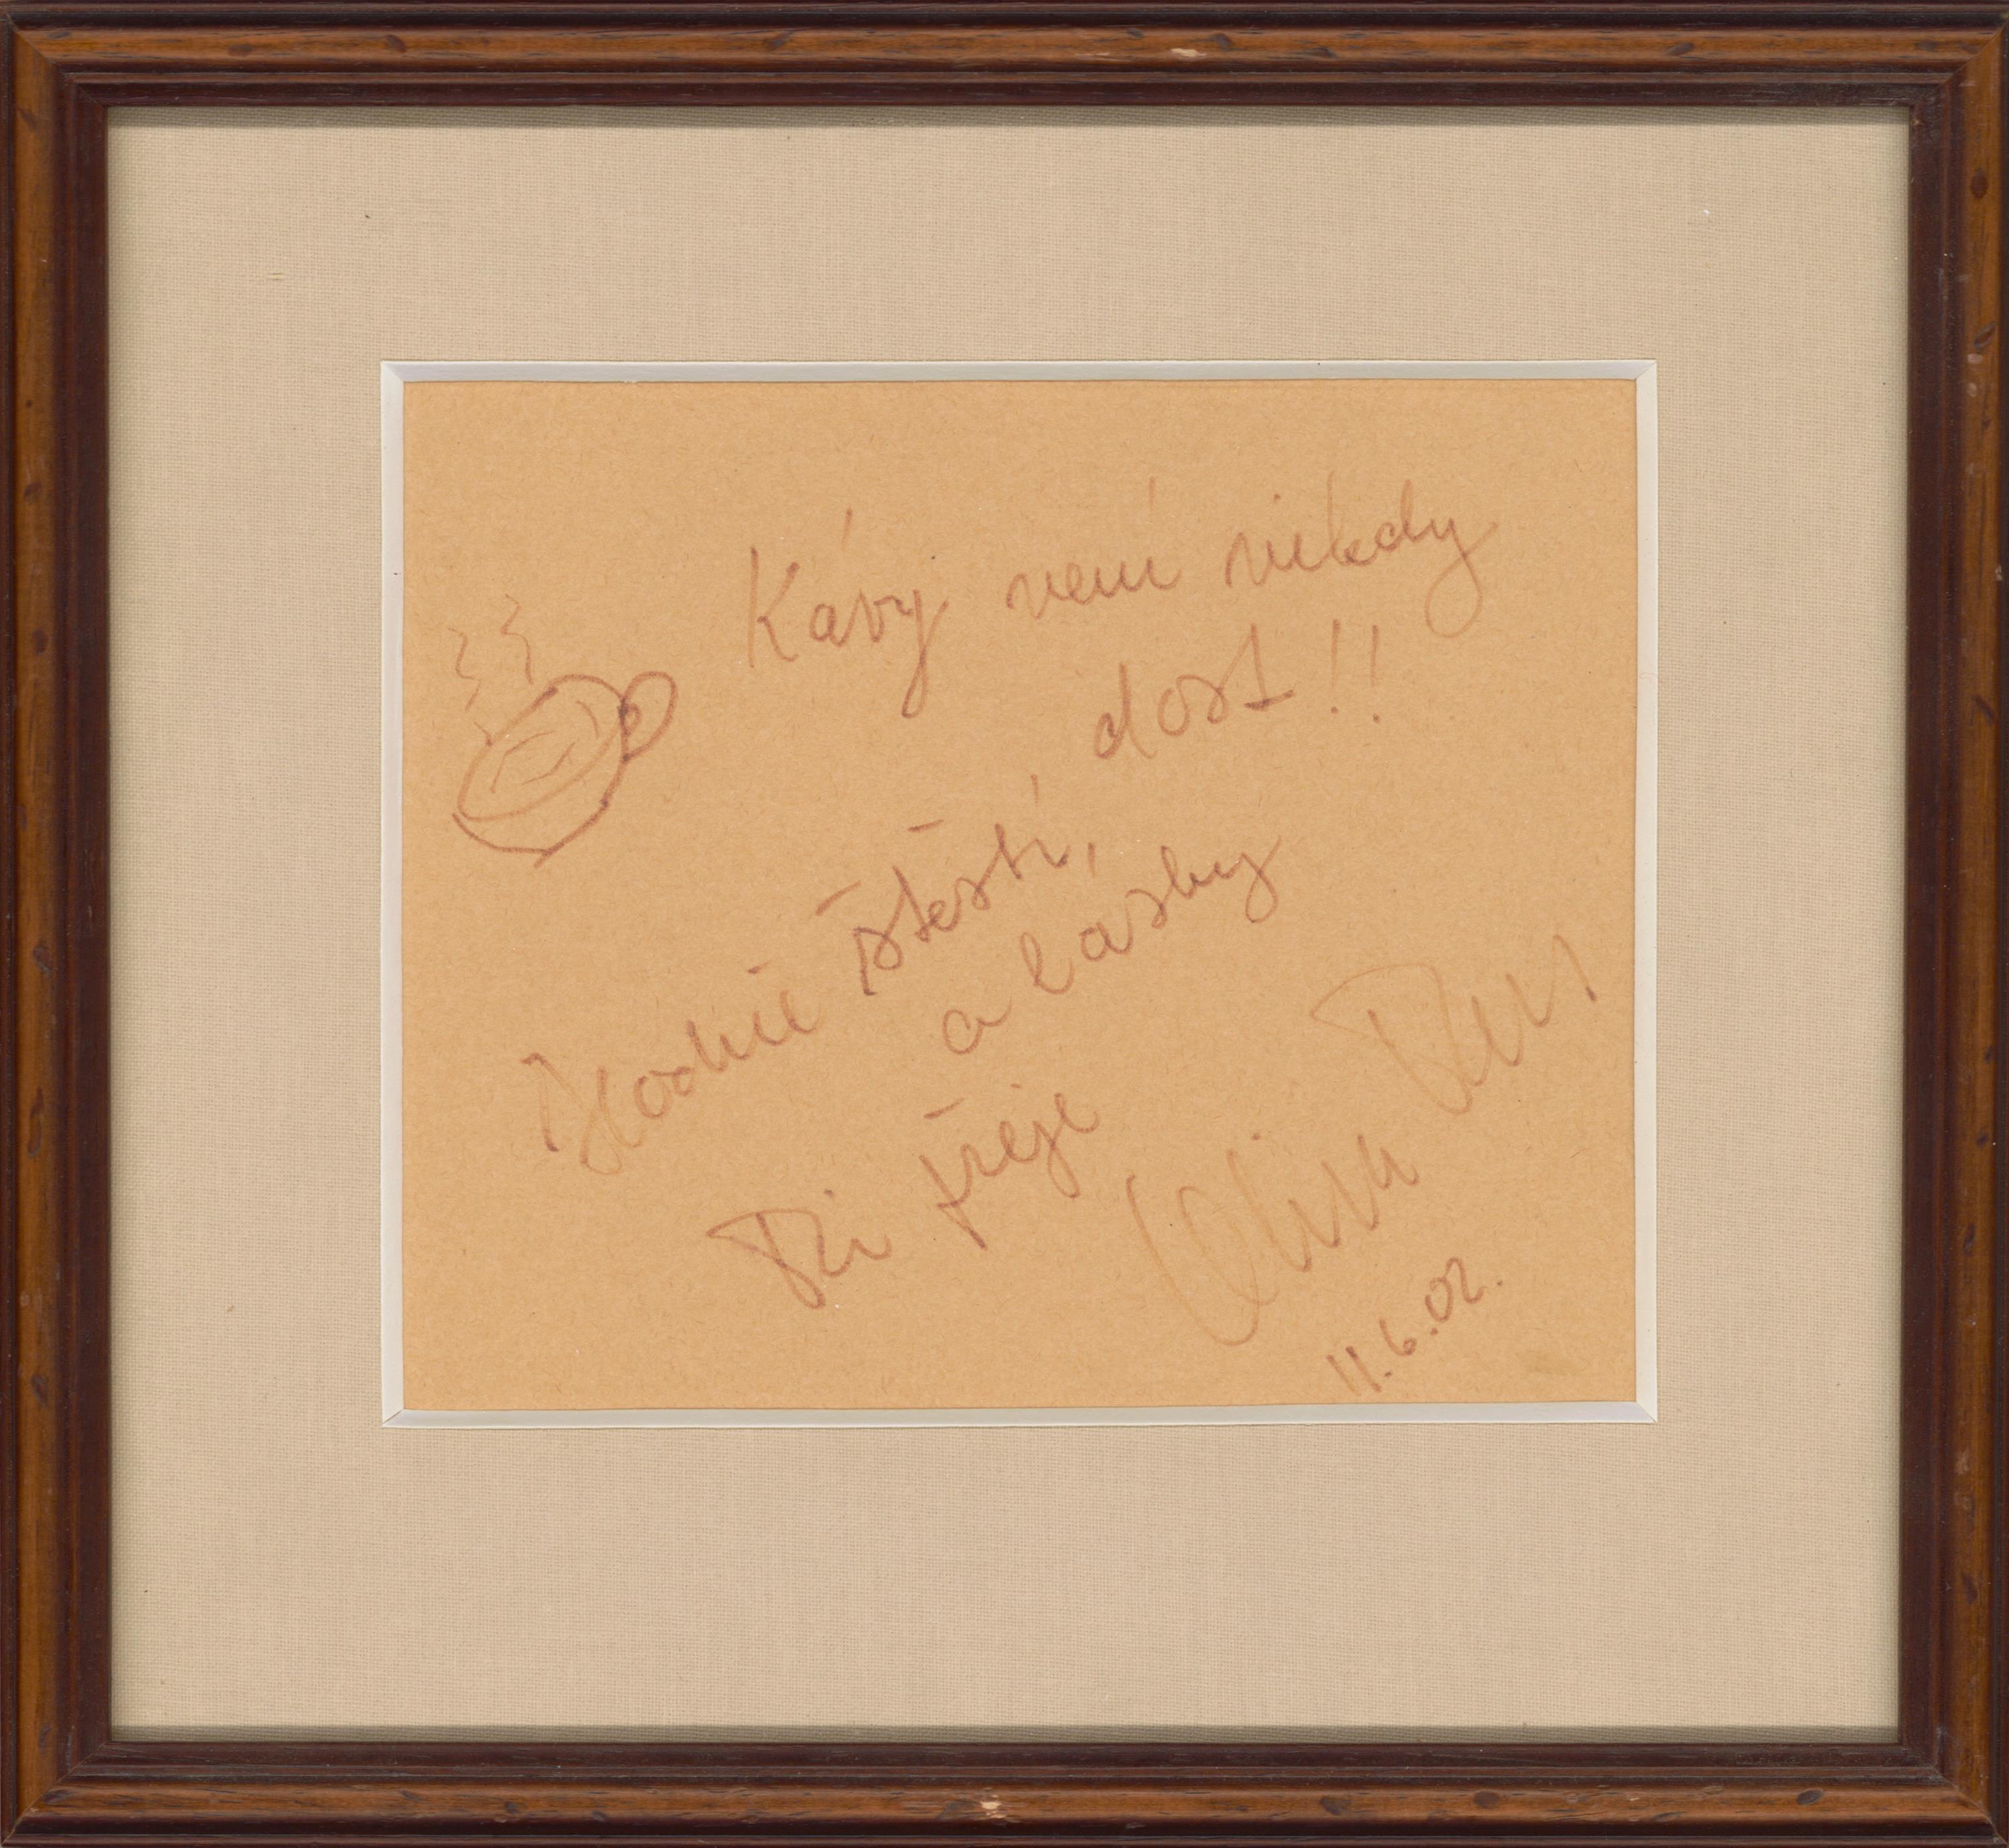 Kávy není nikdy
dost!!
Hodně štěstí,
a lásky
Ti přeje
11.6.02.